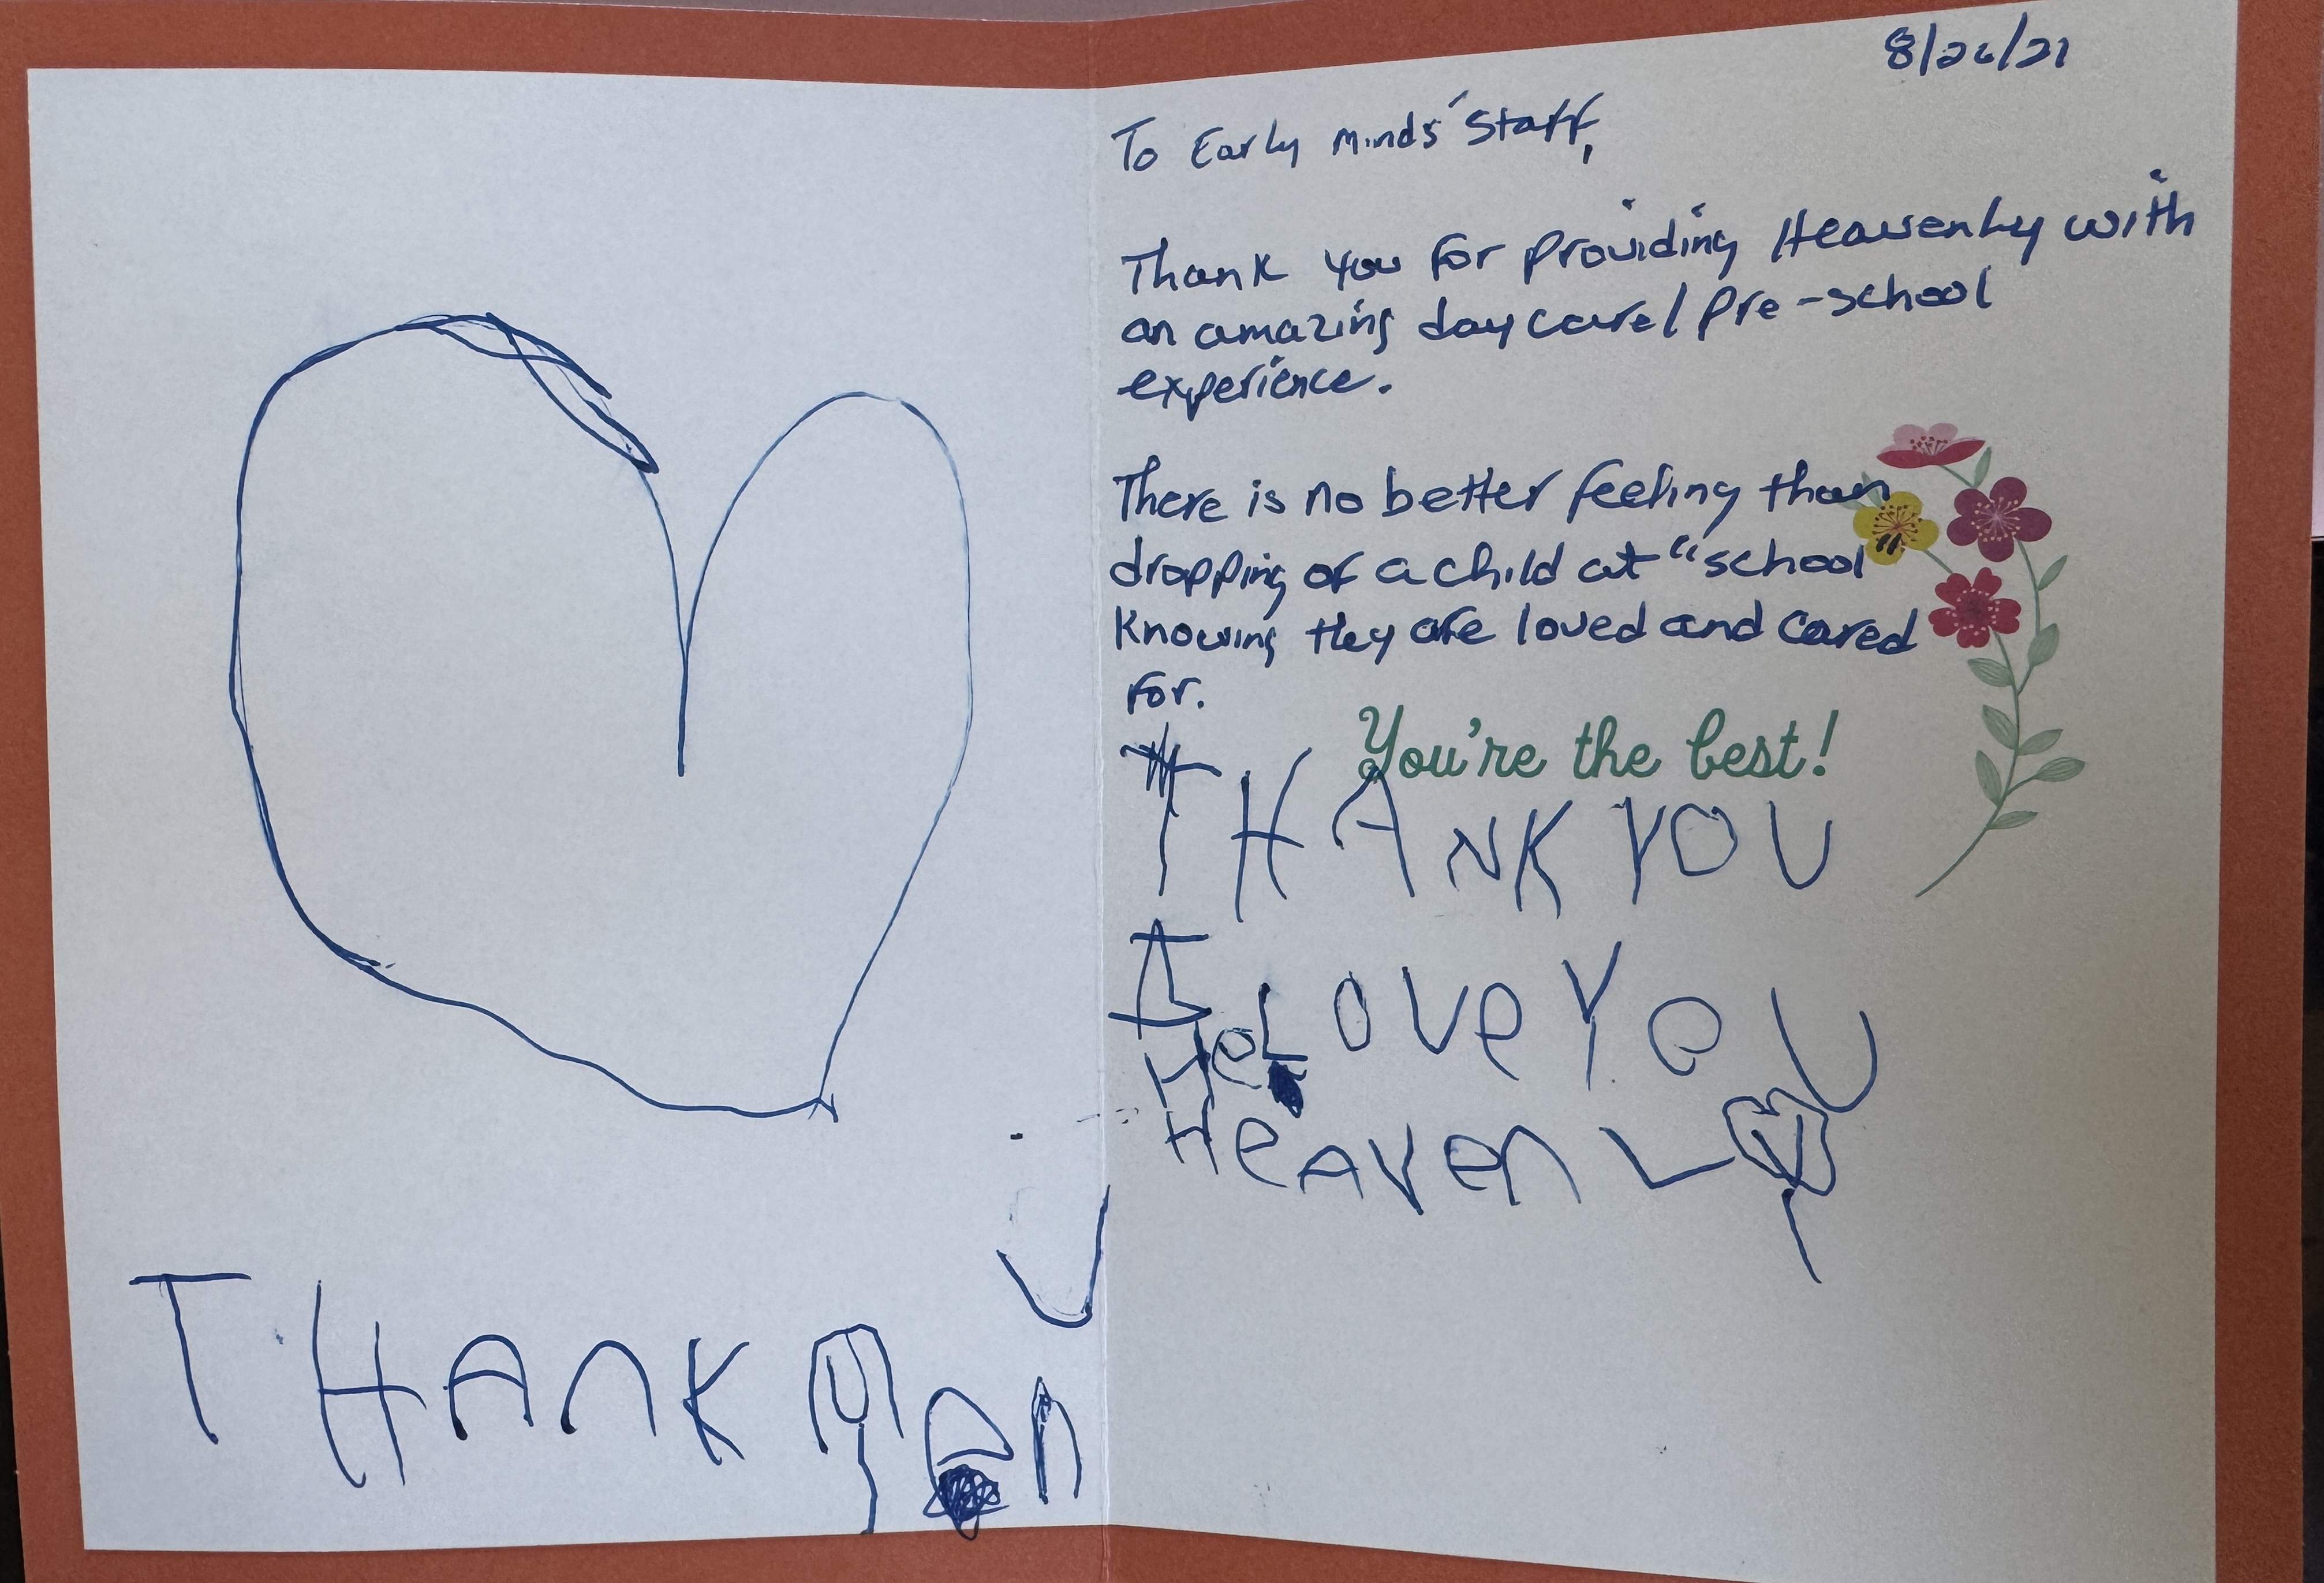 THAnK
U
8/26/21
To Early Minds' Staff,
Thank you for providing Heavenly with
an amazing daycare/Pre-school
experience.
There is no better feeling than
dropping of a child at "school"
knowing they are loved and cared
for.
You're the best!
THANK YOU
I LOVe YoU
He
HeAVenLY